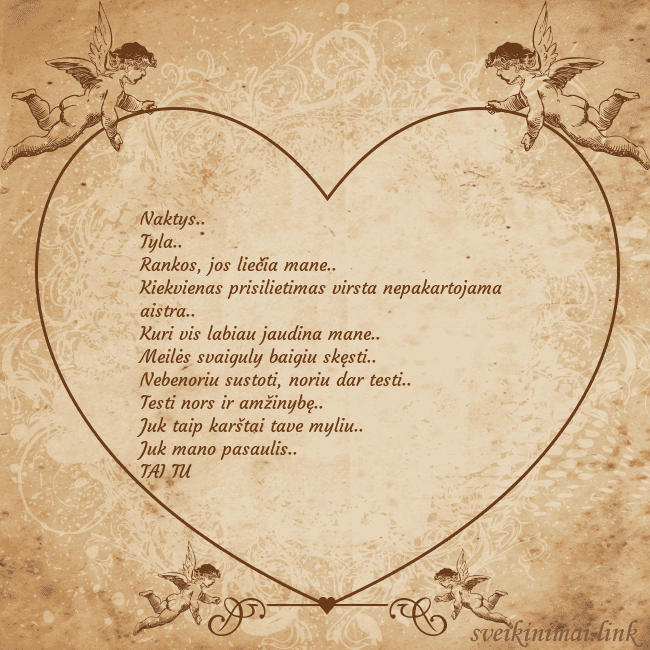 Naktys..
Tyla..
Rankos, jos liečia mane..
Kiekvienas prisilietimas virsta nepakartojama
aistra..
Kuri vis labiau jaudina mane..
Meilės svaiguly baigiu skęsti..
Nebenoriu sustoti, noriu dar testi..
Testi nors ir amžinybę..
Juk taip karštai tave myliu..
Juk mano pasaulis..
TAI TU
sveikinimai.link